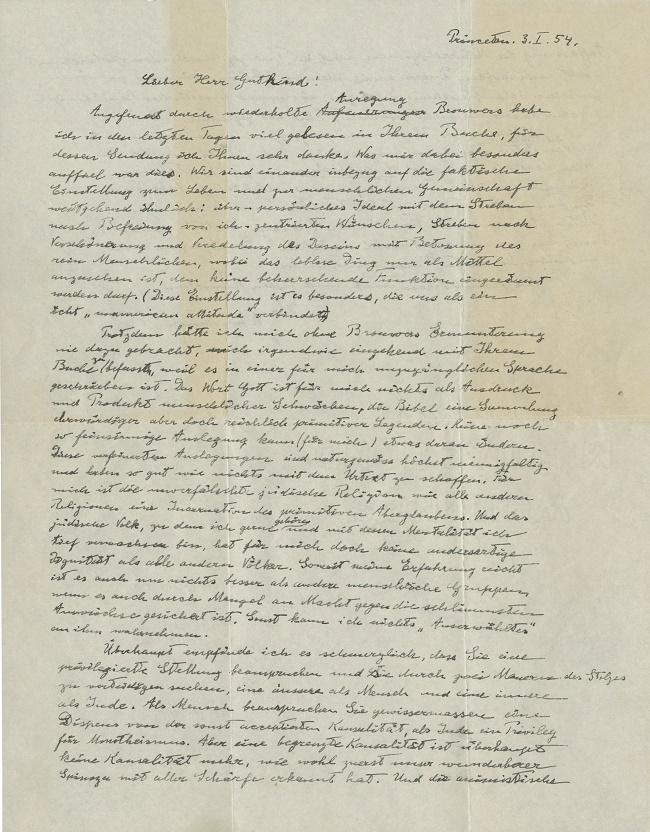 Princeton. 3. I. 54.
Lieber Herr Gutkind!
Angefeuert durch wiederholte Anregung Brouwers habe
ich in den letzten Tagen viel gelesen in Ihrem Buche, für
dessen Sendung ich Ihnen sehr danke. Was mir dabei besonders
auffiel war dies. Wir sind einander inbezug auf die faktische
Einstellung zum Leben und zur menschlichen Gemeinschaft
weitgehend ähnlich: über-persönliches Ideal mit dem Streben
nach Befreiung von ich-zentrierten Wünschen, Streben nach
Verschönerung und Veredelung des Daseins mit Betonung des
rein Menschlichen, wobei das leblose Ding nur als Mittel
anzusehen ist, dem keine beherrschende Funktion eingeräumt
werden darf. (Diese Einstellung ist es besonders, die uns als ein
ächt „unamerican attitude" verbindet)
Trotzdem hätte ich mich ohne Brouwers Ermunterung
nie dazu gebracht, mich irgendwie eingehend mit Ihrem
Buche zu befassen, weil es in einer für mich unzugänglichen Sprache
geschrieben ist. Das Wort Gott ist für mich nichts als Ausdruck
und Produkt menschlicher Schwächen, die Bibel eine Sammlung
ehrwürdiger aber doch reichlich primitiver Legenden. Keine noch
so feinsinnige Auslegung kann (für mich) etwas daran ändern.
Diese verfeinerten Auslegungen sind naturgemäss höchst mannigfaltig
und haben so gut wie nichts mit dem Urtext zu schaffen. Für
mich ist die unverfälschte jüdische Religion wie alle anderen
Religionen eine Incarnation des primitiven Aberglaubens. Und das
jüdische Volk, zu dem ich gerne gehöre und mit dessen Mentalität ich
tief verwachsen bin, hat für mich doch keine andersartige
Dignität als alle anderen Völker. Soweit meine Erfahrung reicht
ist es auch um nichts besser als andere menschliche Gruppen
wenn es auch durch Mangel an Macht gegen die schlimmsten
Auswüchse gesichert ist. Sonst kann ich nichts „Auserwähltes"
an ihm wahrnehmen.
Überhaupt empfinde ich es schmerzlich, dass Sie eine
privilegierte Stellung beanspruchen und sie durch zwei Mauern des Stolzes
zu verteidigen suchen, eine äussere als Mensch und eine innere
als Jude. Als Mensch beanspruchen Sie gewissermassen einen
Dispens von der sonst acceptierten Kausalität, als Jude ein Privileg
für Monotheismus. Aber eine begrenzte Kausalität ist überhaupt
keine Kausalität mehr, wie wohl zuerst unser wunderbarer
Spinoza mit aller Schärfe erkannt hat. Und die animistische